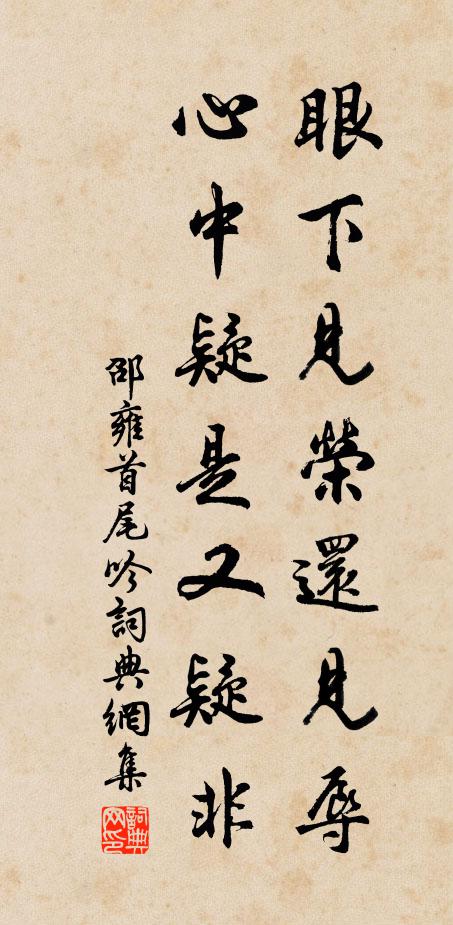 眼下見榮還見辱
心中疑是又疑非
邵雍首尾吟詞典網集
詞典網印